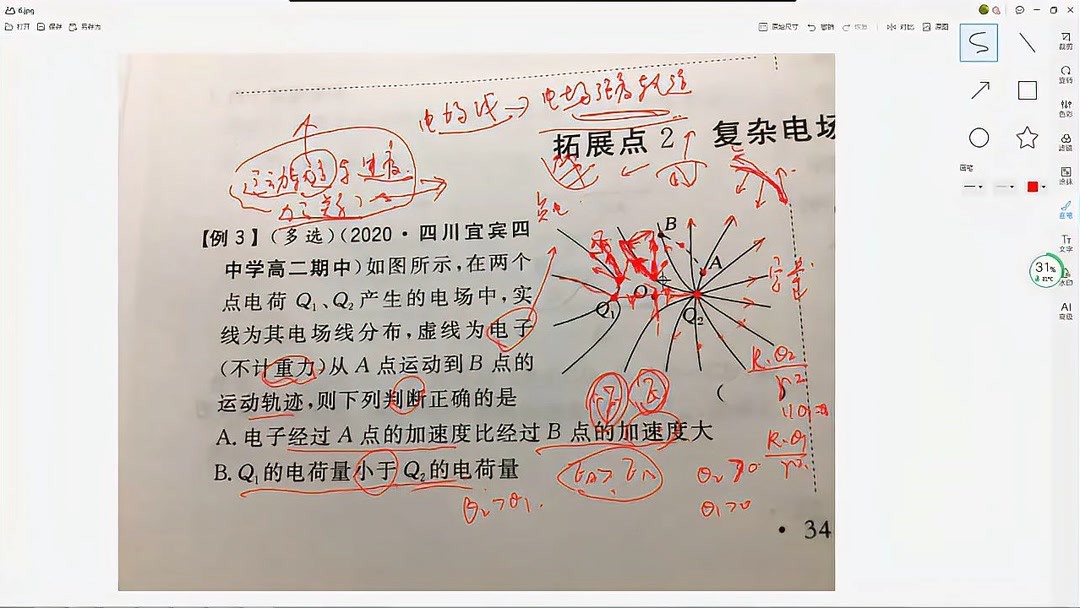 6.jpg
打开 保存 另存为
原始尺寸 撤销 恢复 对比 原图
裁剪
旋转
色彩
滤镜
涂抹
画笔
画笔
文字
31%
水印
AI
电场线→电场强度
拓展点 2 复杂电场
速度
负电
【例 3】(多选)(2020·四川宜宾四
中学高二期中)如图所示,在两个
点电荷 Q₁、Q₂ 产生的电场中,实
线为其电场线分布,虚线为电子
(不计重力)从 A 点运动到 B 点的
运动轨迹,则下列判断正确的是
(
B
A
O
Q₁
Q₂
A. 电子经过 A 点的加速度比经过 B 点的加速度大
B. Q₁ 的电荷量小于 Q₂ 的电荷量
Q₂>Q₁.
Q₂>0
Q₁>0
• 34